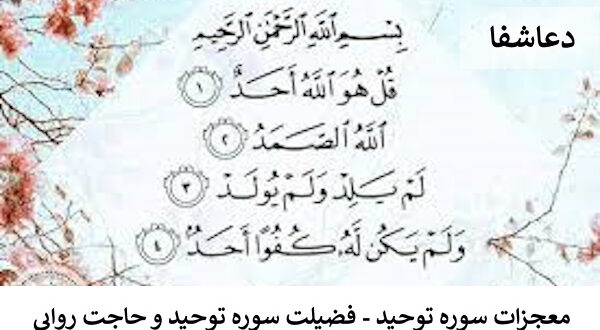 دعاشفا
بِسْمِ ٱللَّهِ ٱلرَّحْمَٰنِ ٱلرَّحِيمِ
قُلْ هُوَ ٱللَّهُ أَحَدٌ ١
ٱللَّهُ ٱلصَّمَدُ ٢
لَمْ يَلِدْ وَلَمْ يُولَدْ ٣
وَلَمْ يَكُن لَّهُۥ كُفُوًا أَحَدٌۢ ٤
معجزات سوره توحید - فضیلت سوره توحید و حاجت روایی